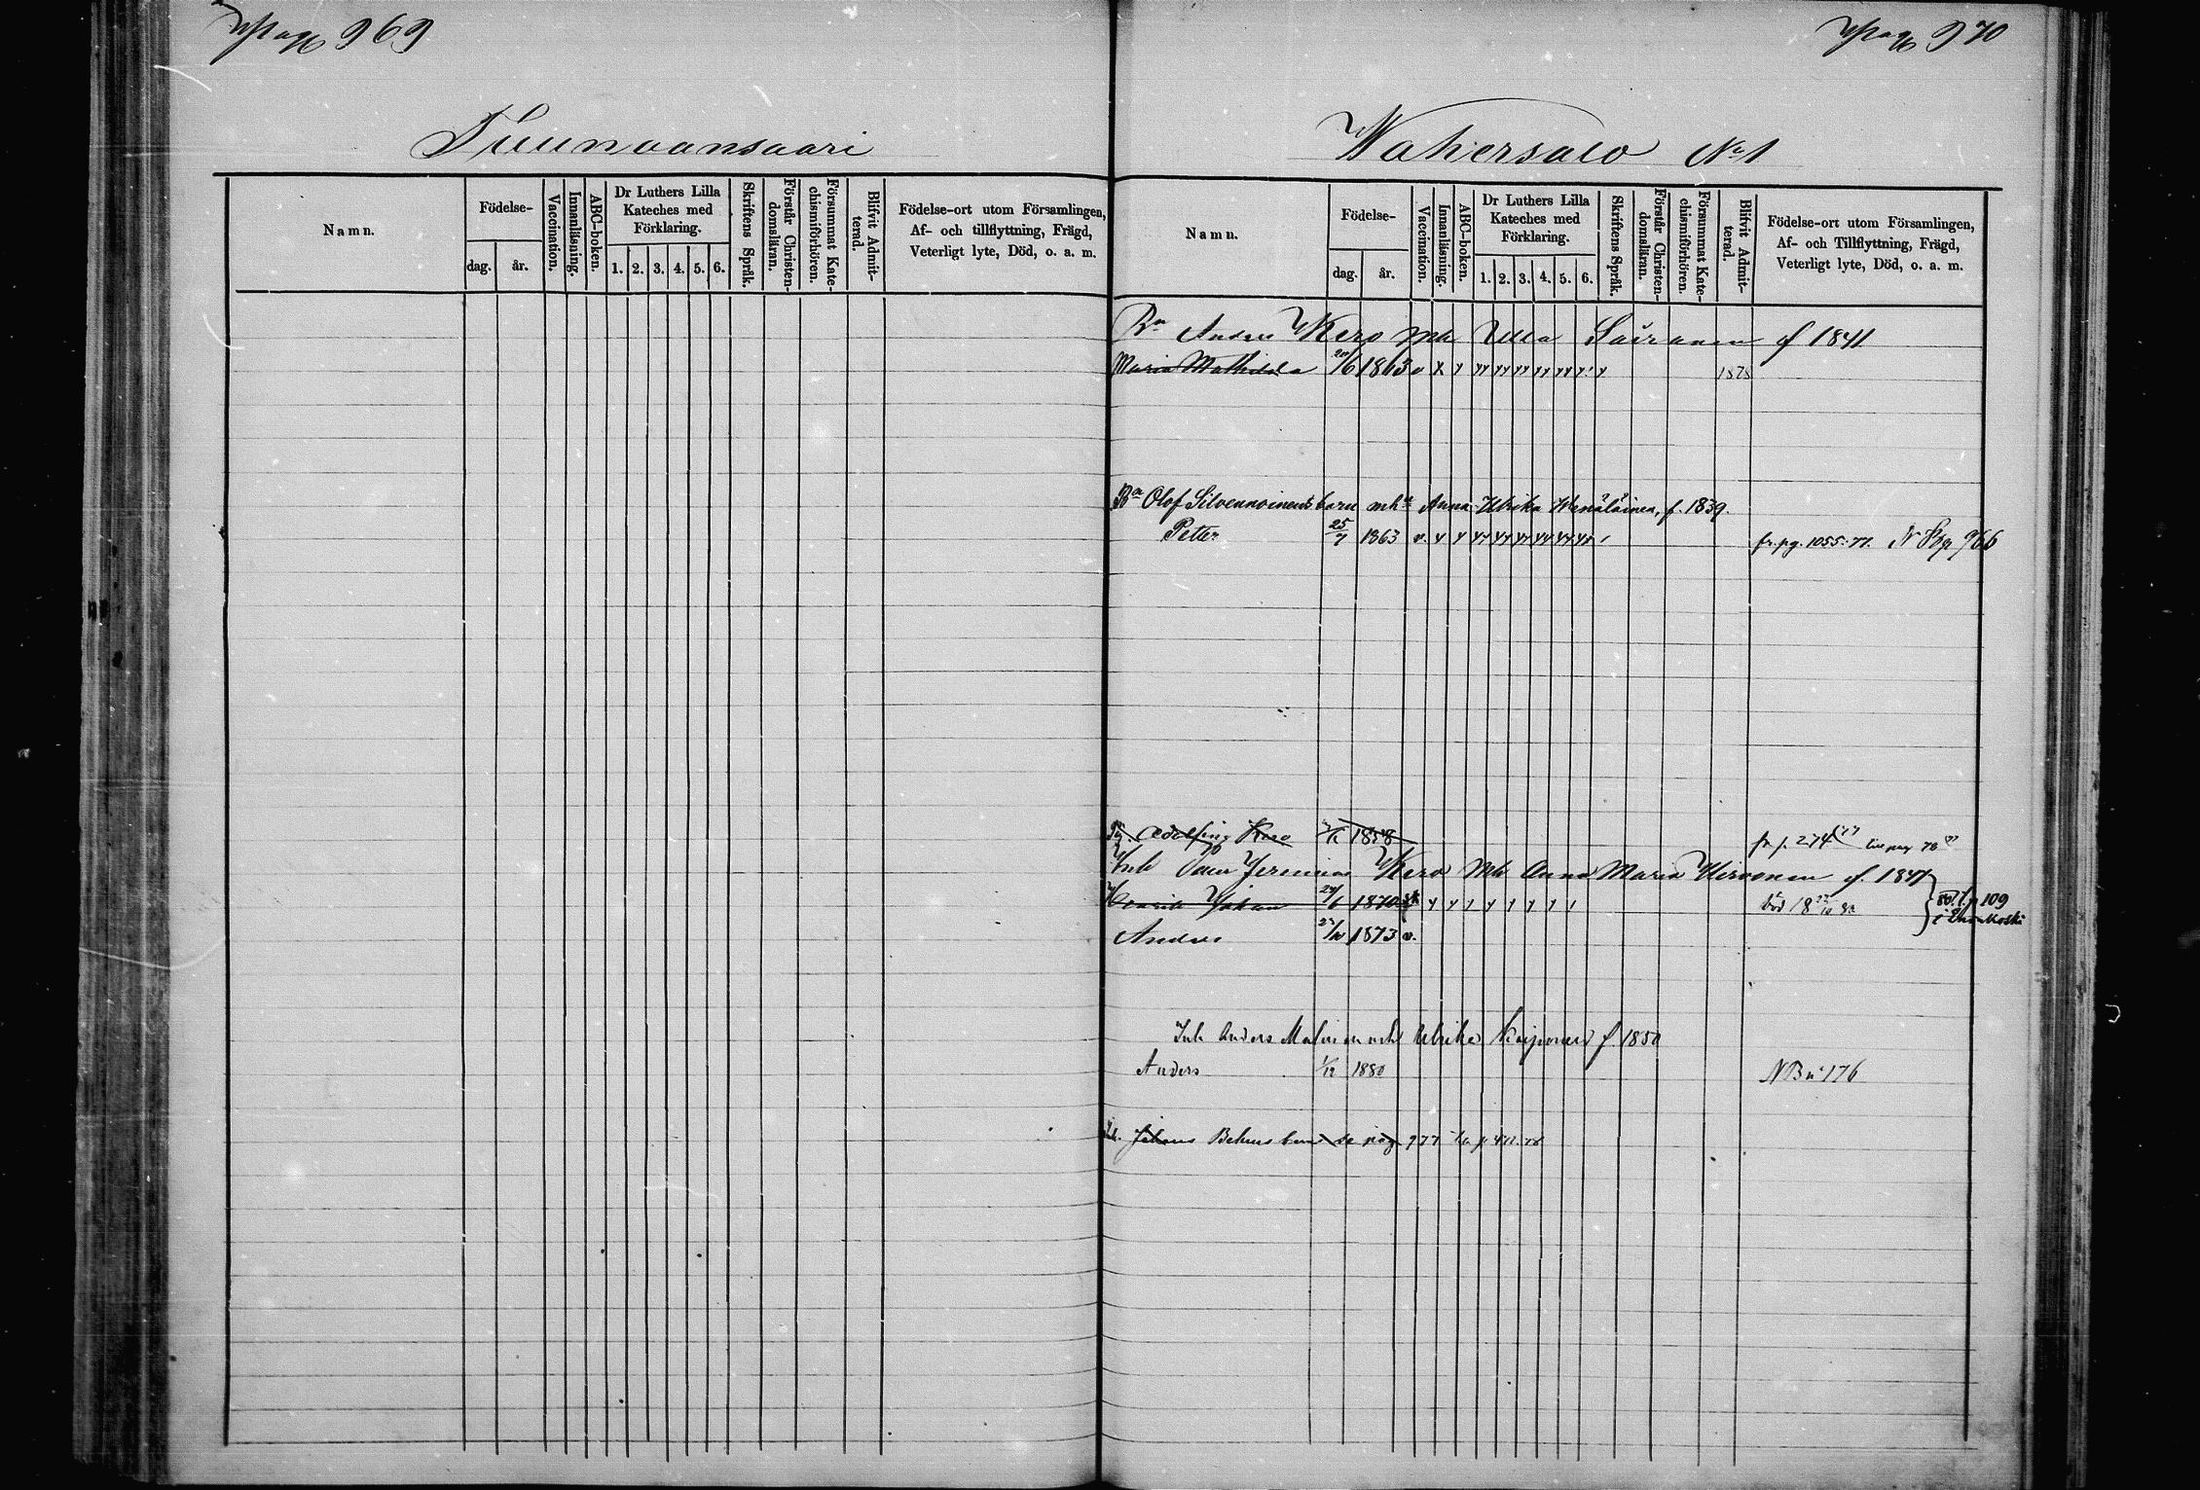 pag 969
Tuunaansaari
Namn.
Födelse-
dag.
år.
Vaccination.
Innanläsning.
ABC-boken.
Dr Luthers Lilla
Kateches med
Förklaring.
1. 2. 3. 4. 5. 6.
Skriftens Språk.
Förstår Christen-
domsläran.
Försummat Kate-
chismiförhören.
Blifvit Admit-
terad.
Födelse-ort utom Församlingen,
Af- och tillflyttning, Frägd,
Veterligt lyte, Död, o. a. m.
pag 970
Wahersalo No 1
Namn.
Födelse-
dag.
år.
Vaccination.
Innanläsning.
ABC-boken.
Dr Luthers Lilla
Kateches med
Förklaring.
1. 2. 3. 4. 5. 6.
Skriftens Språk.
Förstår Christen-
domsläran.
Försummat Kate-
chismiförhören.
Blifvit Admit-
terad.
Födelse-ort utom Församlingen,
Af- och Tillflyttning, Frägd,
Veterligt lyte, Död, o. a. m.
Bn Anders Kero mh Ulla Sairanen f 1841
Maria Mathilda 20/6 1863 v 1878
Bn Olof Silvennoinens barn mh Anna Ulrika Wenäläinen, f. 1839.
Peter 25/7 1863 v. fr. pg. 1055. 77. N 966
Kero 1858 fr p. 274
Inh Jeremias Kero mh Anna Maria Hirvonen f. 1841
Henrik Johan 24/6 1870 död 109
Anders 1873 v.
Inh Anders och Ulrika f 1850
Anders 1/12 1880 NB n 176
Inh. Johans se pag 977